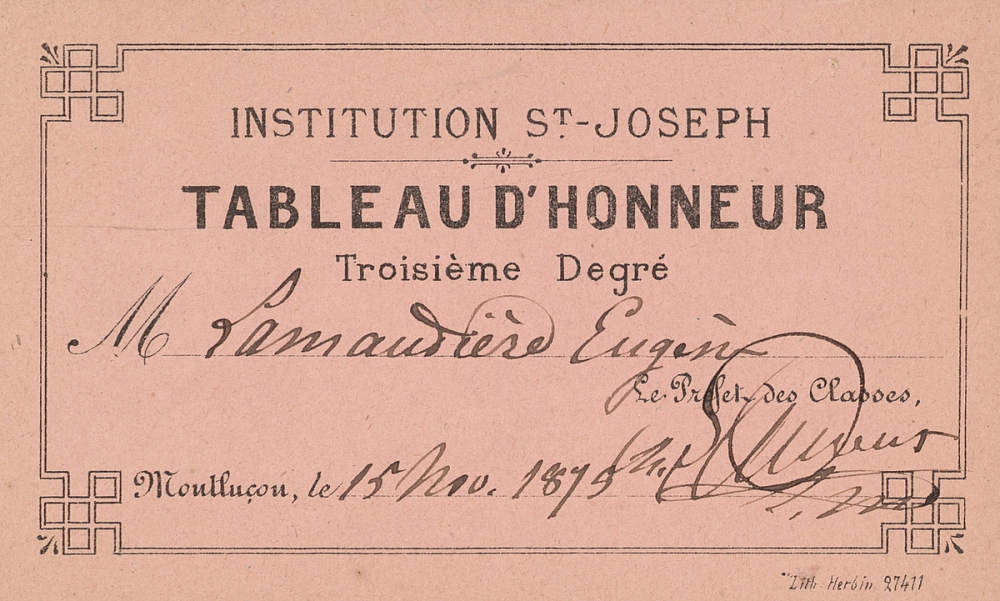 INSTITUTION ST-JOSEPH
TABLEAU D'HONNEUR
Troisième Degré
M Lamaudière Eugèn
Le Préfet des Classes,
Montluçon, le 15 Nov. 1875
Lith Herbin 27411